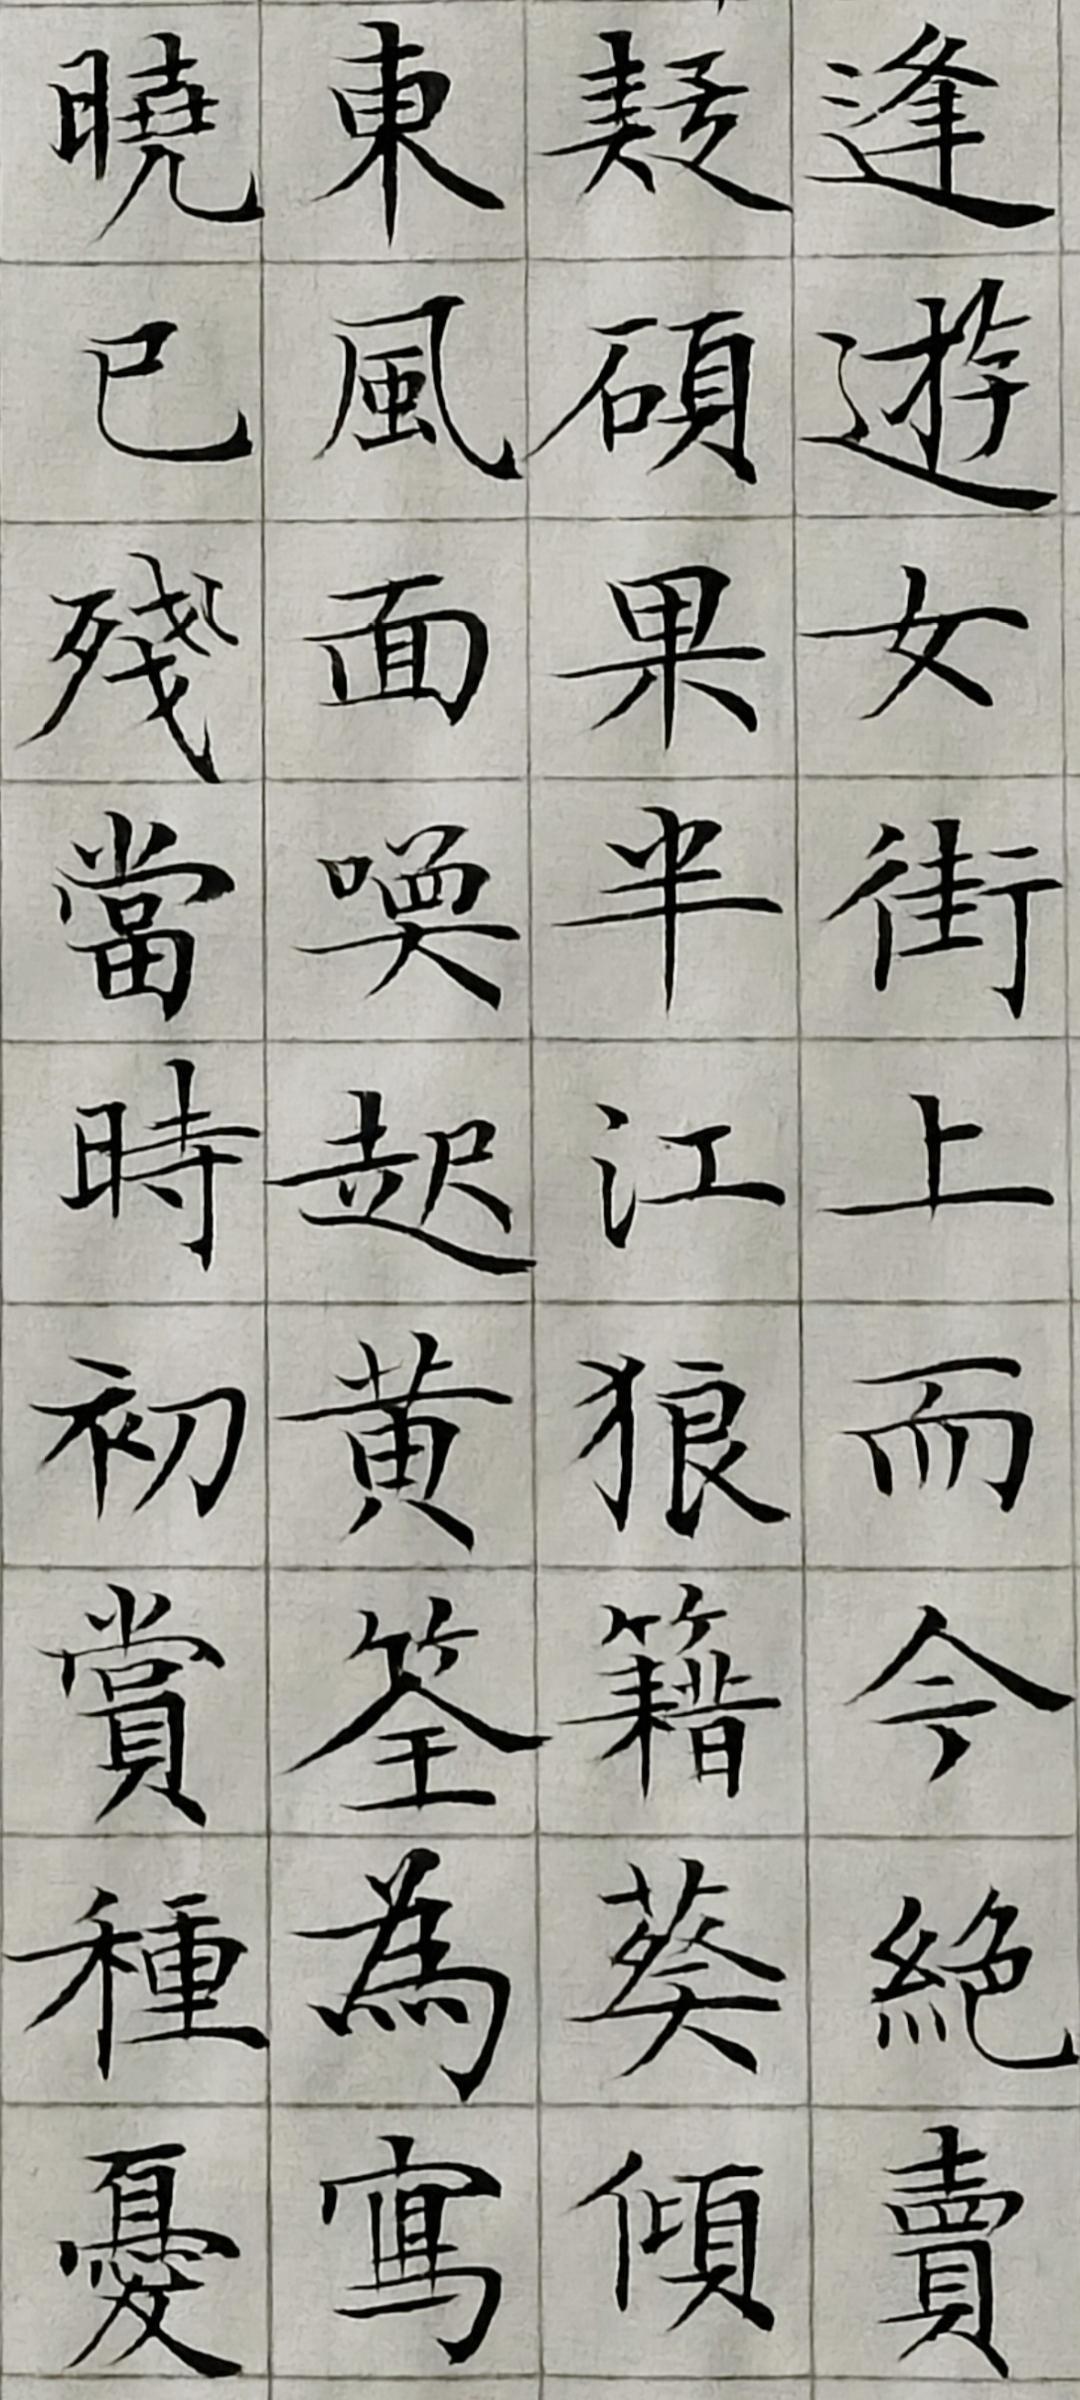 逢遊女街上而今絶賣
疑碩果半江狼籍葵傾
東風面喚起黄筌為寫
曉已殘當時初賞種憂